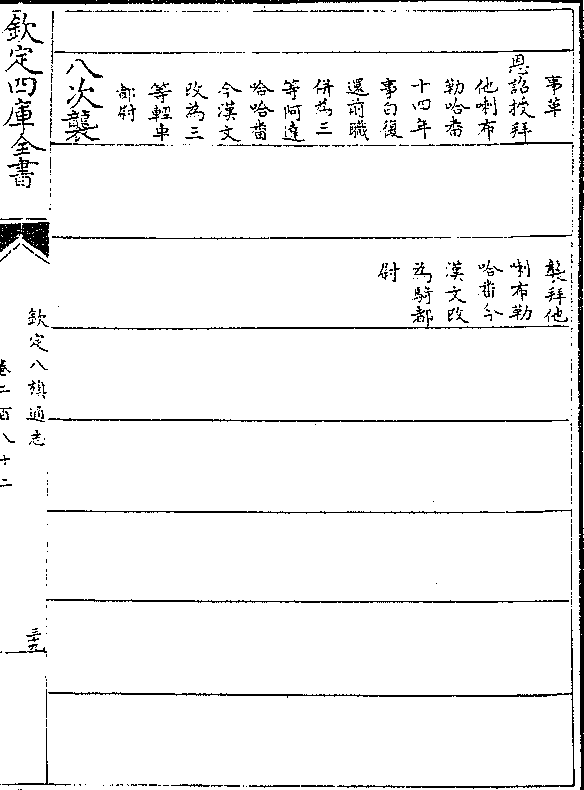 事革
恩詔授拜
他喇布
勒哈番
十四年
事白復
還前職
併為三
等阿達
哈哈番
今漢文
改為三
等輕車
都尉
襲拜他
喇布勒
哈番今
漢文改
為騎都
尉
八次襲
欽定四庫全書
欽定八旗通志
卷二百八十二
三十九